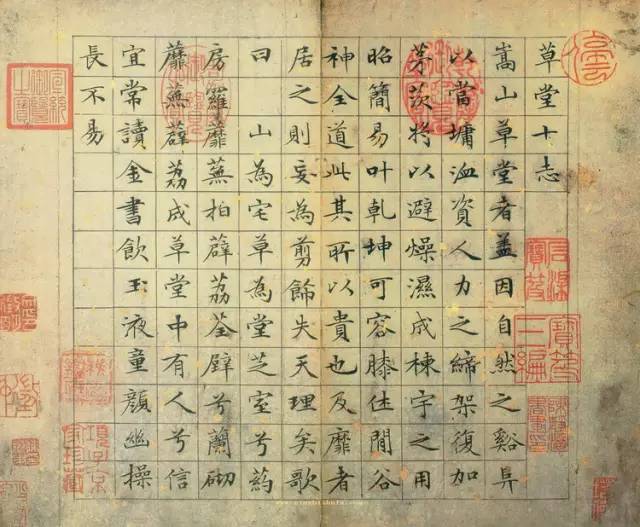 草堂十志
嵩山草堂者盖因自然之谿阜
以當墉洫資人力之締架復加
茅茨將以避燥濕成棟宇之用
昭簡易叶乾坤可容膝休閒谷
神全道此其所以貴也及靡者
居之則妄為剪飾失天理矣歌
曰山為宅草為堂芝室兮葯
房羅蘼蕪拍薜荔荃壁兮蘭砌
蘼蕪薜荔成草堂中有人兮信
宜常讀金書飲玉液童顏幽操
長不易
石渠寶笈
寶笈三編
宣統御覽之寶
項子京家珍藏